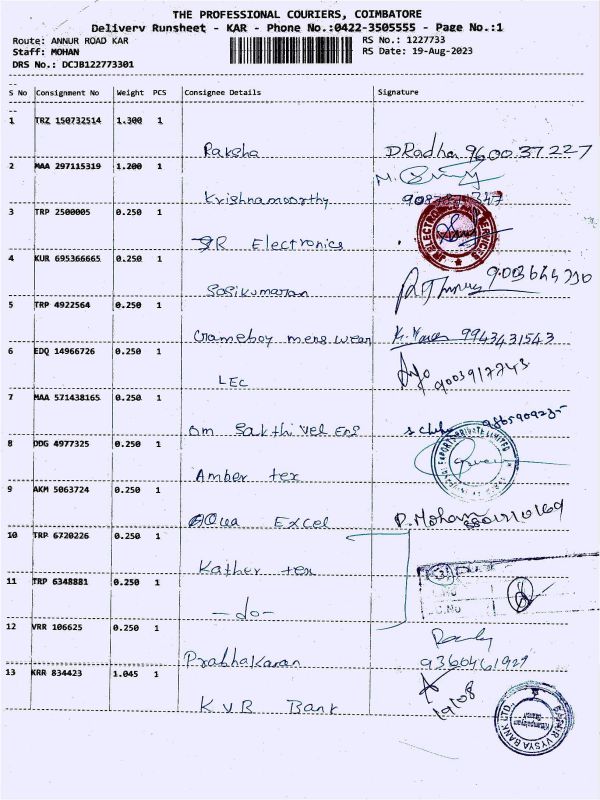 THE PROFESSIONAL COURIERS, COIMBATORE
Delivery Runsheet - KAR - Phone No.:0422-3505555 - Page No.:1
Route: ANNUR ROAD KAR RS No.: 1227733
Staff: MOHAN RS Date: 19-Aug-2023
DRS No.: DCJB122773301
S No Consignment No Weight PCS Consignee Details Signature
1 TRZ 150732514 1.300 1
Raksha D Radha 9600 37 227
2 MAA 297115319 1.200 1
Krishnamoorthy
3 TRP 2500005 0.250 1
JR Electronics
4 KUR 695366665 0.250 1
Sasikumaran
5 TRP 4922564 0.250 1
Crameboy mens wear 9943431543
6 EDQ 14966726 0.250 1
LEC
7 MAA 571438165 0.250 1
Om Sakthi vel Eng
8 DDG 4977325 0.250 1
Amber tex
9 AKM 5063724 0.250 1
Aqua Excel P. Mohan
10 TRP 6720226 0.250 1
Kather tex
11 TRP 6348881 0.250 1
-do-
12 VRR 106625 0.250 1
Prabhakaran
13 KRR 834423 1.045 1
KVB Bank 19/08